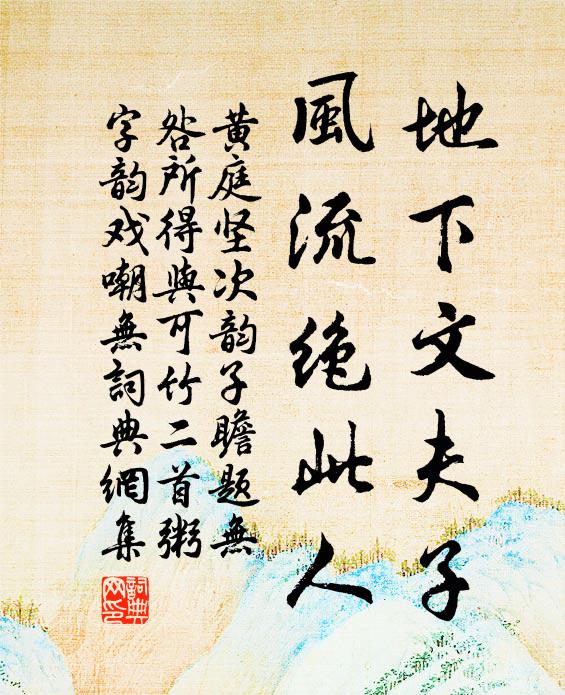 地下文夫子
風流絶此人
黄庭坚次韵子瞻题無
咎所得與可竹二首粥
字韵戏嘲無詞典網集
詞典
網印